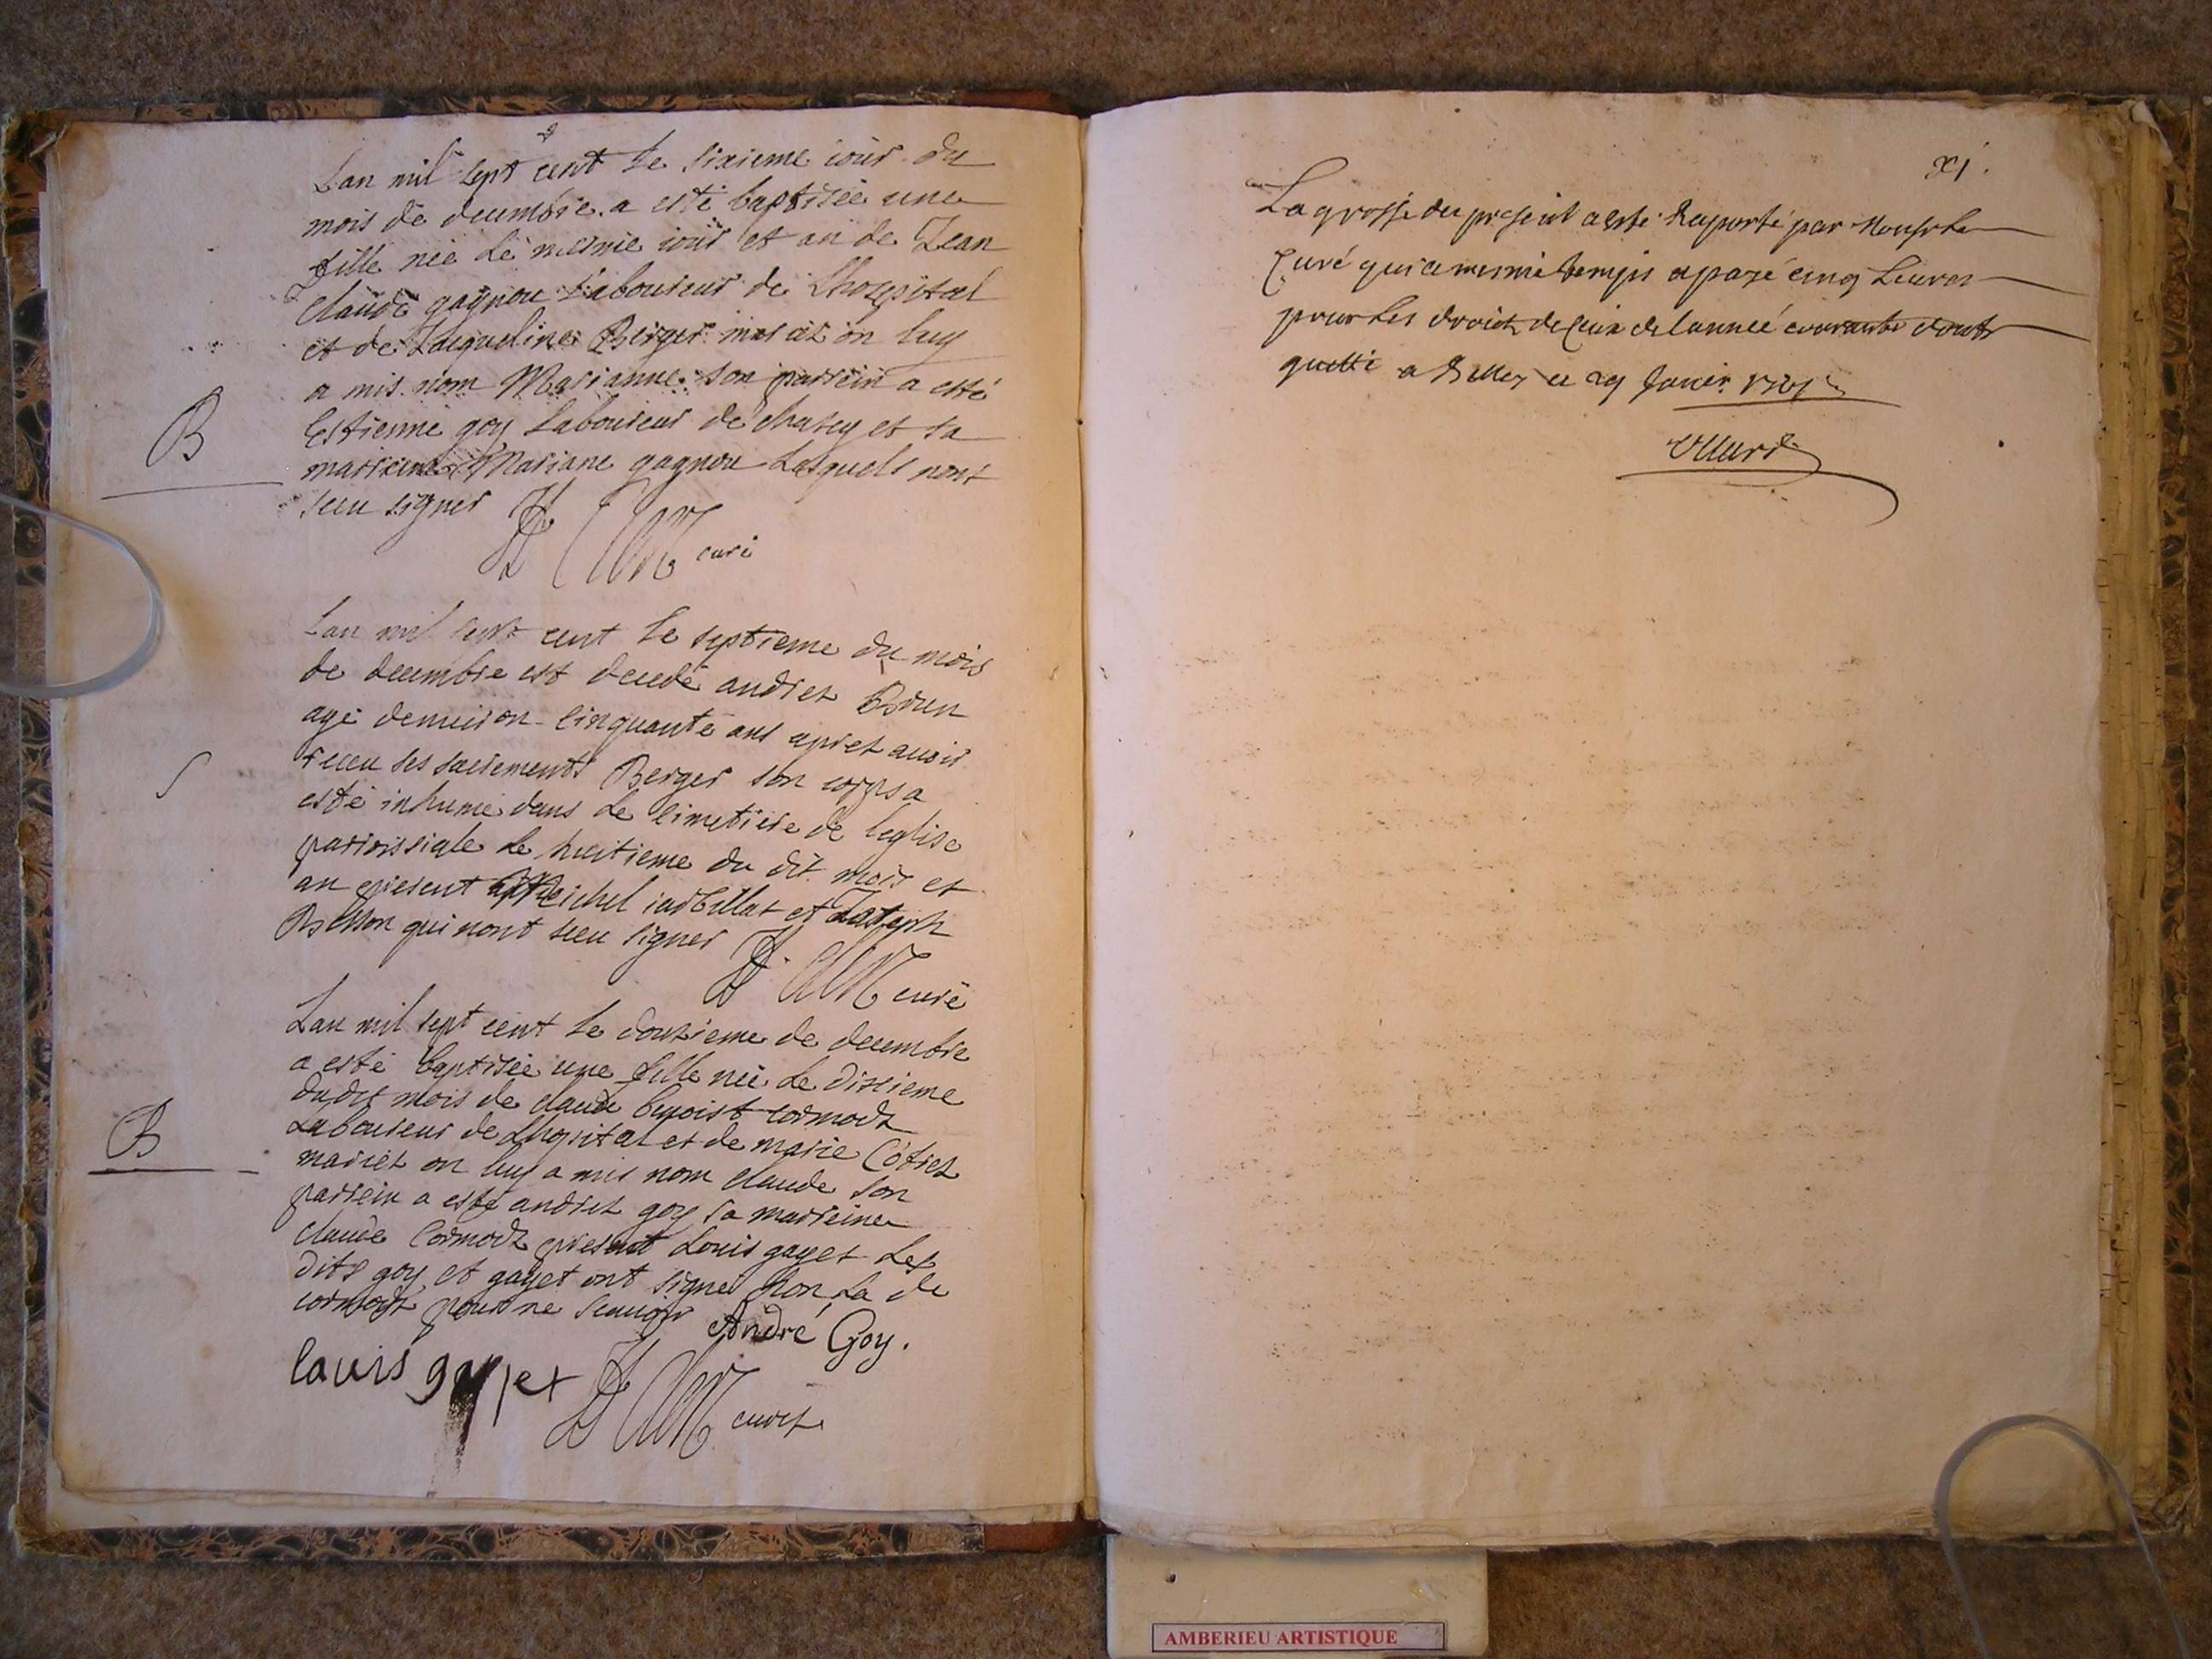 Lan mil sept cent le sixieme iour du
mois de decembre a esté baptisée une
fille née le mesme iour et an de Jean
claude gagnou Laboureur de Lhospital
et de Jacqueline Berger mariez on luy
a mis nom Marianne son parrein a esté
Estienne goy Laboureur de charey et sa
marreine Mariane gagnou Lesquels nont
sceu signer
curé
B
Lan mil sept cent le septieme du mois
de decembre est decedé andrez Brun
agé denuiron cinquante ans aprez auoir
receu ses sacrements Berger son corps a
esté inhumé dans le cimetiere de leglise
parroissiale le huitieme du dit mois et
an present Michel iarbillat et Joseph
qui nont sceu signer
curé
S
Lan mil sept cent le douzieme de decembre
a esté baptisée une fille née le dixieme
dudit mois de claude benoist cormoz
Laboureur de Lhopital et de marie Cotret
mariez on luy a mis nom claude son
parrein a esté andrez goy sa marreine
claude Cormoz present Louis gayet Les
dits goy et gayet ont signé non la de
cormoz pour ne scauoir
André Goy.
louis gayet
curé
B
xj.
La grosse du present a esté Raporté par Monsr le
Curé qui a mesme temps a payé cinq Liures
pour les droicts de ceux de lannée courante dont
quitte a Belley ce 29 Januier 1701
AMBERIEU ARTISTIQUE